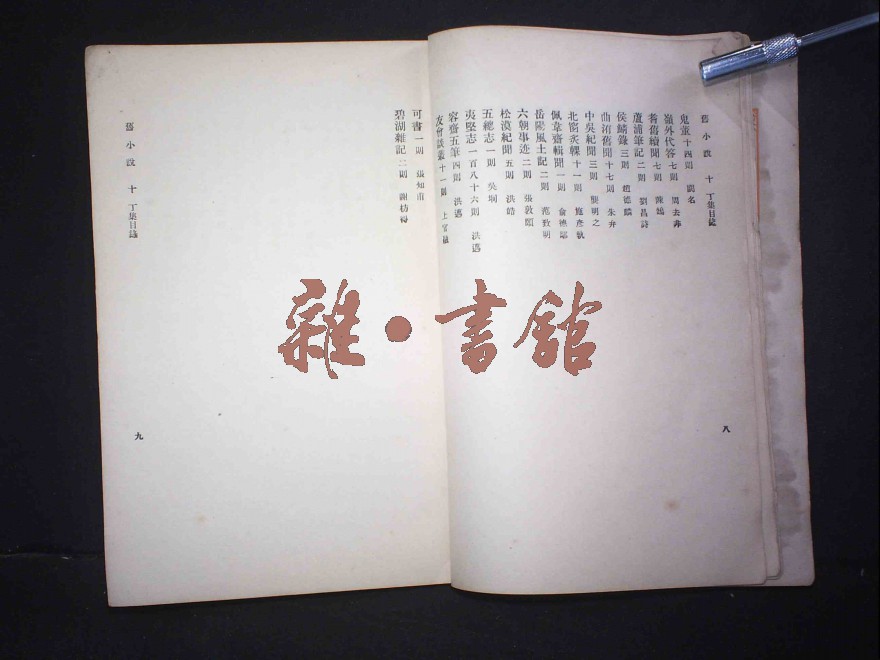 舊小說 十 丁集目錄
鬼董十四則 闕名
嶺外代答七則 周去非
耆舊續聞七則 陳鵠
蘆浦筆記二則 劉昌詩
侯鯖錄三則 趙德麟
曲洧舊聞十七則 朱弁
中吳紀聞三則 龔明之
北窗炙輠十一則 施彥執
佩韋齋輯聞一則 俞德鄰
岳陽風土記二則 范致明
六朝事迹二則 張敦頤
松漠紀聞五則 洪皓
五總志一則 吳坰
夷堅志一百八十六則 洪邁
容齋五筆四則 洪邁
友會談叢十一則 上官融
八
可書一則 張知甫
碧湖雜記二則 謝枋得
舊小說 十 丁集目錄
九
雜·書館